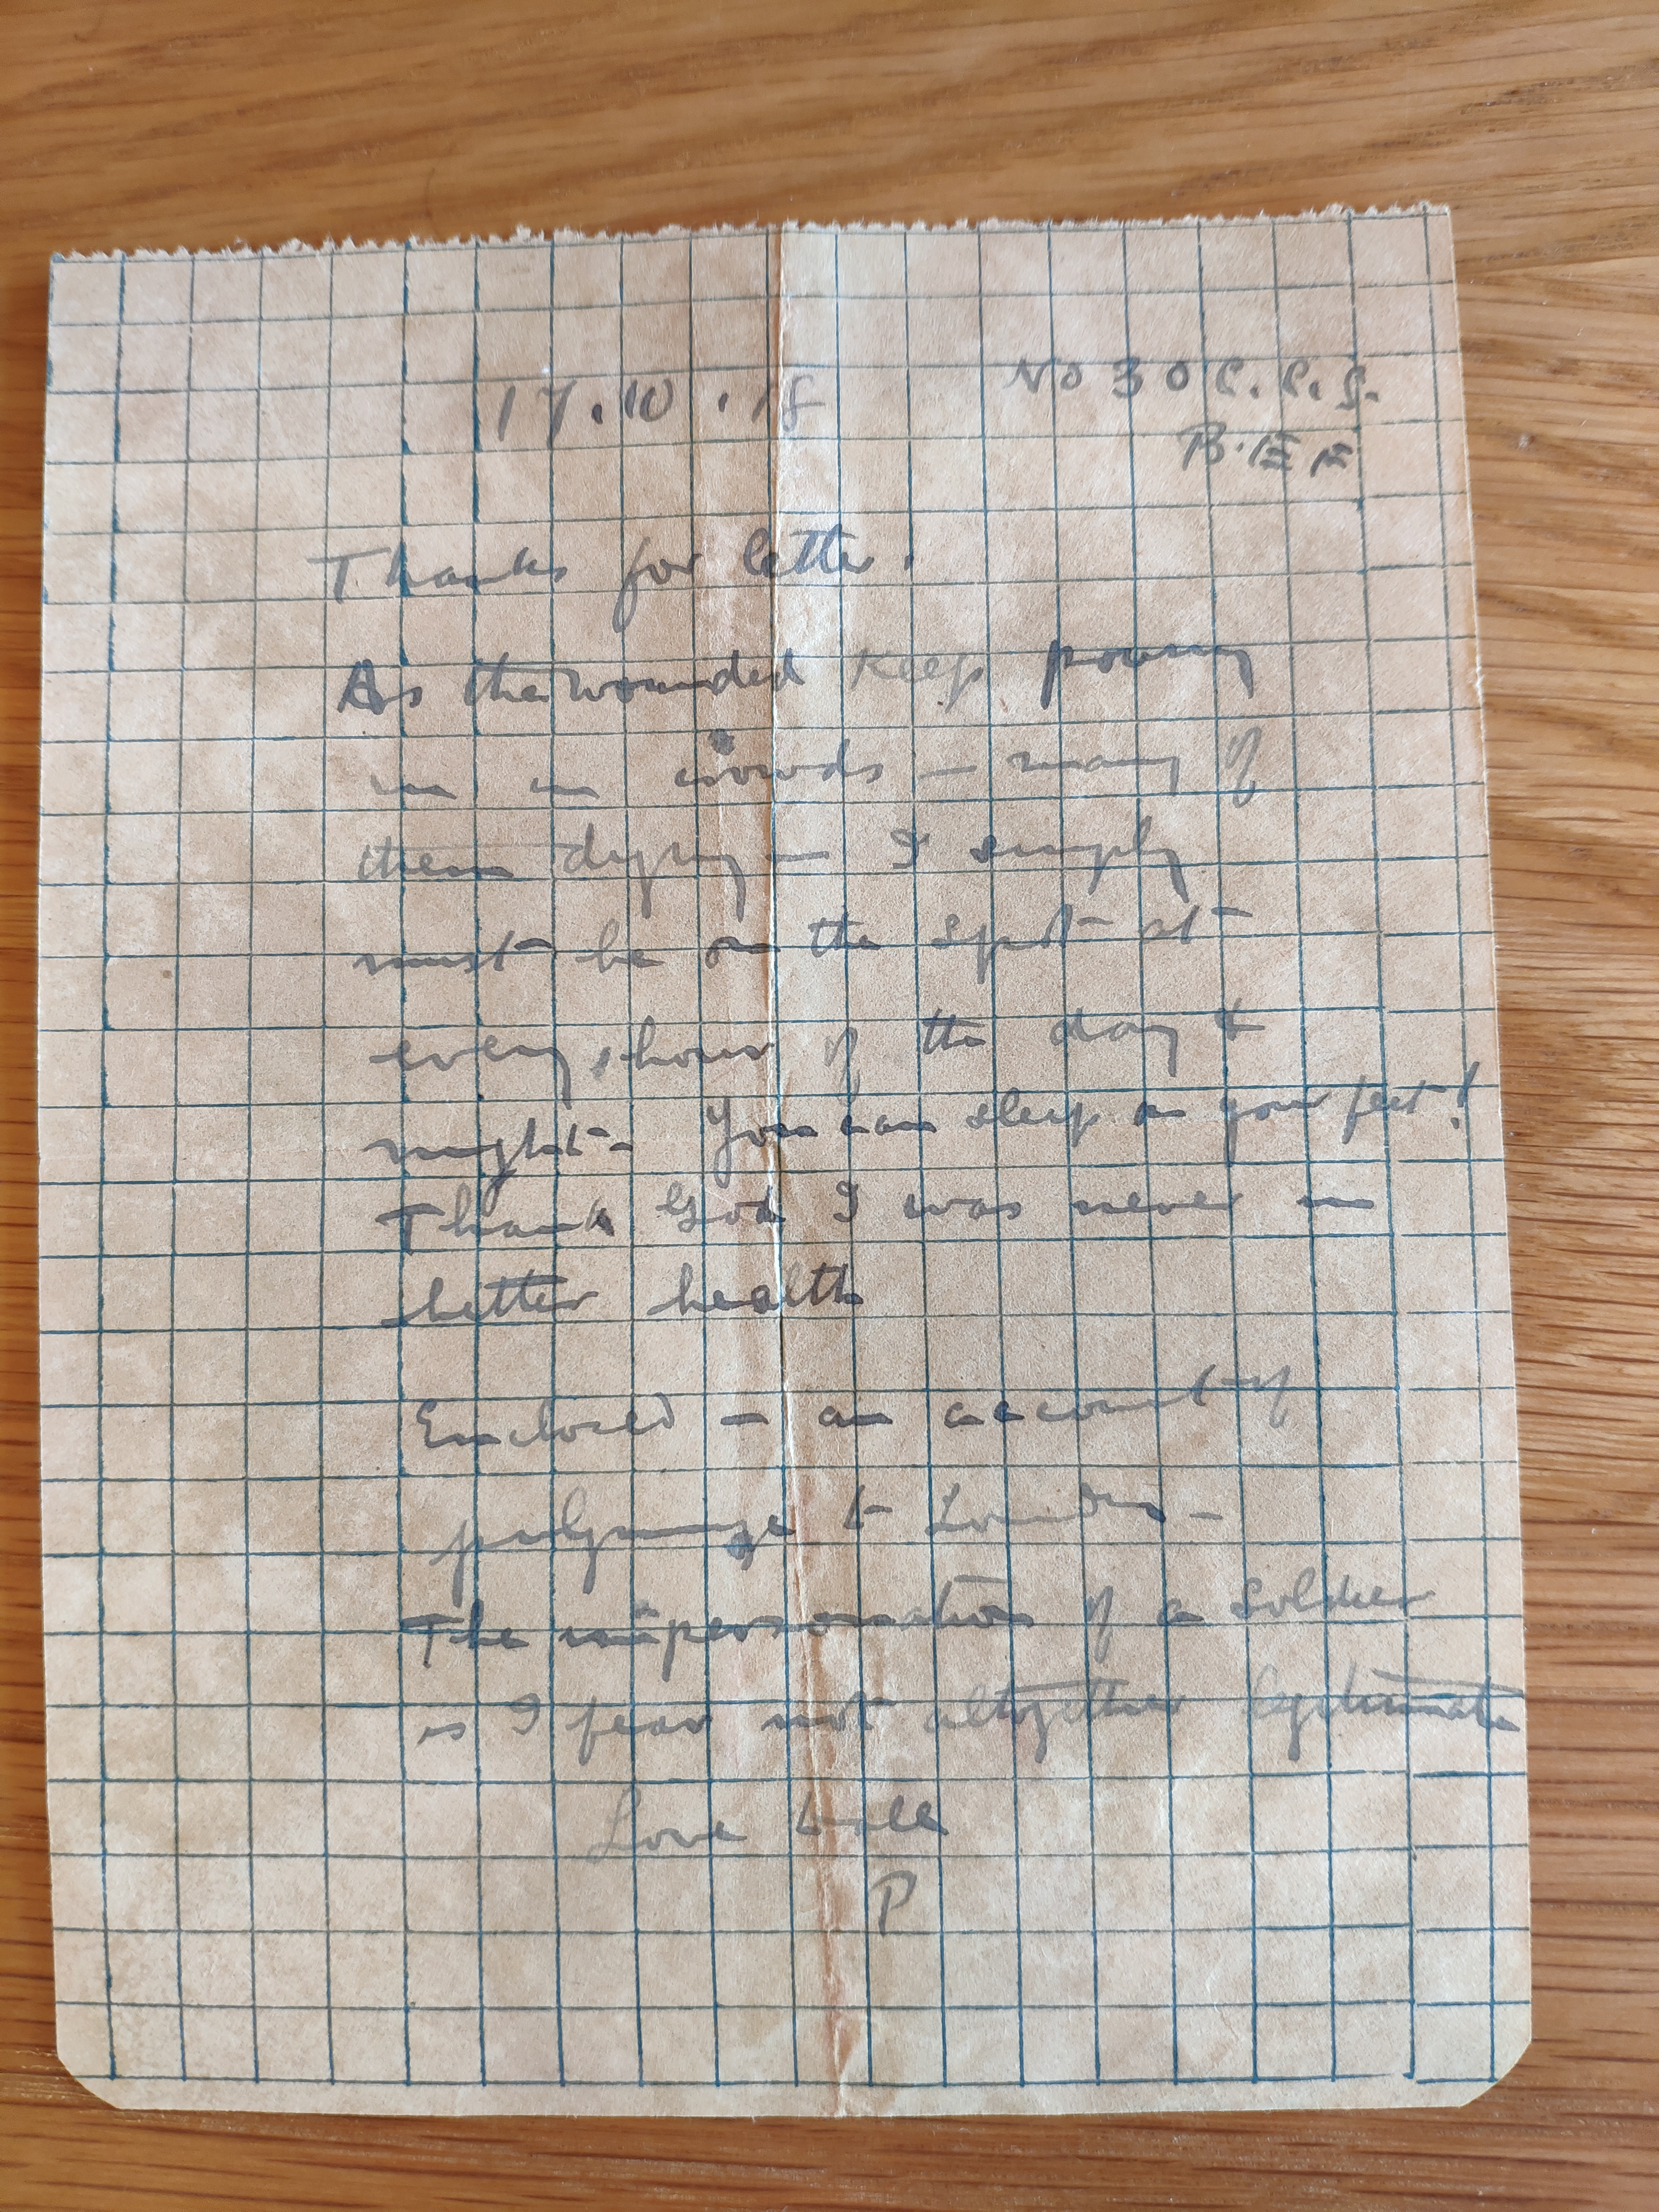 17.10.18 No 30 C.C.S.
B.E.F
Thanks for letter.
As the wounded keep pouring
in in crowds – many of
them dying – I simply
must be on the spot at
every hour of the day &
night – You can sleep on your feet!
Thank God I was never in
better health
Enclosed – an account of
pilgrimage to Lourdes –
The impersonation of a soldier
is I fear not altogether legitimate
Love to all
P